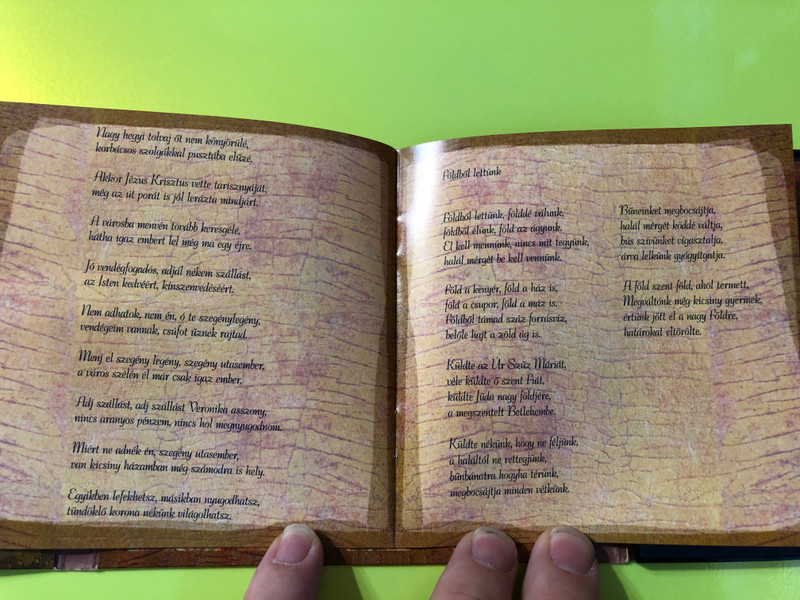 Nagy hegyi tolvaj őt nem könyörülé,
korbácsos szolgákkal pusztába elűzé.
Akkor Jézus Krisztus vette tarisznyáját,
még az út porát is jól lerázta mindjárt.
A városba menvén tovább keresgéle,
hátha igaz embert lel még ma egy éjre.
Jó vendégfogadós, adjál nékem szállást,
az Isten kedvéért, kínszenvedéséért.
Nem adhatok, nem én, ó te szegénylegény,
vendégeim vannak, csúfot űznek rajtad.
Menj el szegény legény, szegény utasember,
a város szélén él már csak igaz ember.
Adj szállást, adj szállást Veronika asszony,
nincs aranyos pénzem, nincs hol megnyugodnom.
Miért ne adnék én, szegény utasember,
van kicsiny házamban még számodra is hely.
Egyikben lefekhetsz, másikban nyugodhatsz,
tündöklő korona nékünk világolhatsz.
Földből lettünk
Földből lettünk, földdé válunk,
földből élünk, föld az ágyunk.
El kell mennünk, nincs mit tegyünk,
halál mérgét be kell vennünk.
Föld a kenyér, föld a ház is,
föld a csupor, föld a máz is.
Földből támad száz forrásvíz,
belőle hajt a zöld ág is.
Küldte az Úr Szűz Máriát,
véle küldte ő szent Fiát,
küldte Júda nagy földjére,
a megszentelt Betlehembe.
Küldte nékünk, hogy ne féljünk,
a haláltól ne rettegjünk,
bűnbánatra hogyha térünk,
megbocsájtja minden vétkünk.
Bűneinket megbocsájtja,
halál mérgét köddé váltja,
bús szívünket vigasztalja,
árva lelkünk gyógyítgatja.
A föld szent föld, ahol termett,
Megváltónk még kicsiny gyermek,
értünk jött el a nagy Földre,
határokat eltörölte.